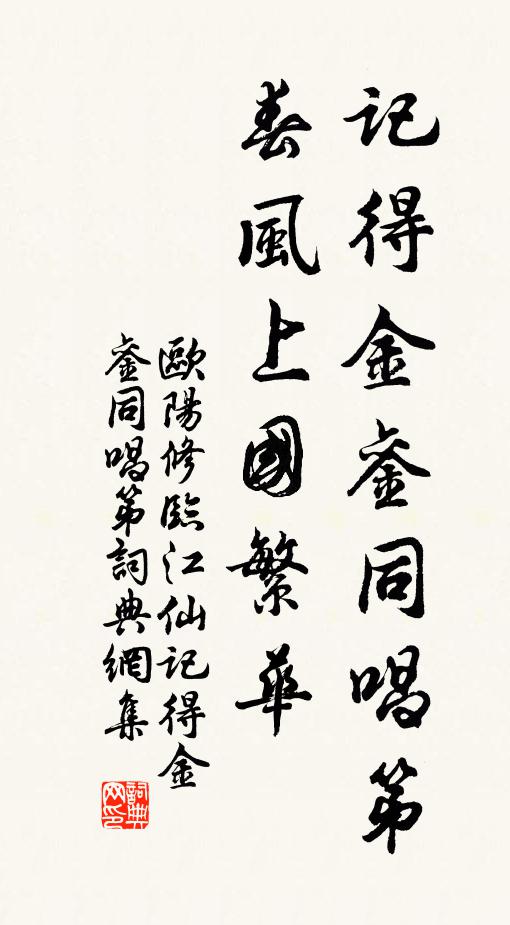 記得金鑾同唱第
春風上國繁華
歐陽修臨江仙記得金
鑾同唱第詞典網集
詞典网印